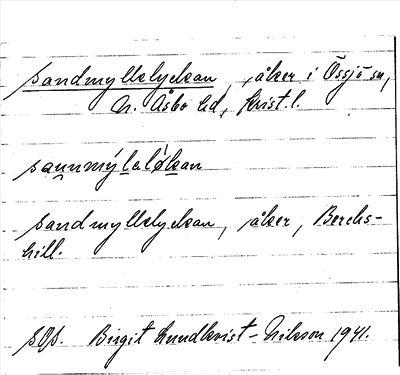 Sandmyllelyckan, åker i Össjö sn,
N. Åsbo hd, Krist. l.
saunmýlaløkan
Sandmyllelyckan, åker, Berchs-
hill.
SOS. Birgit Lundkvist-Nilsson 1941.